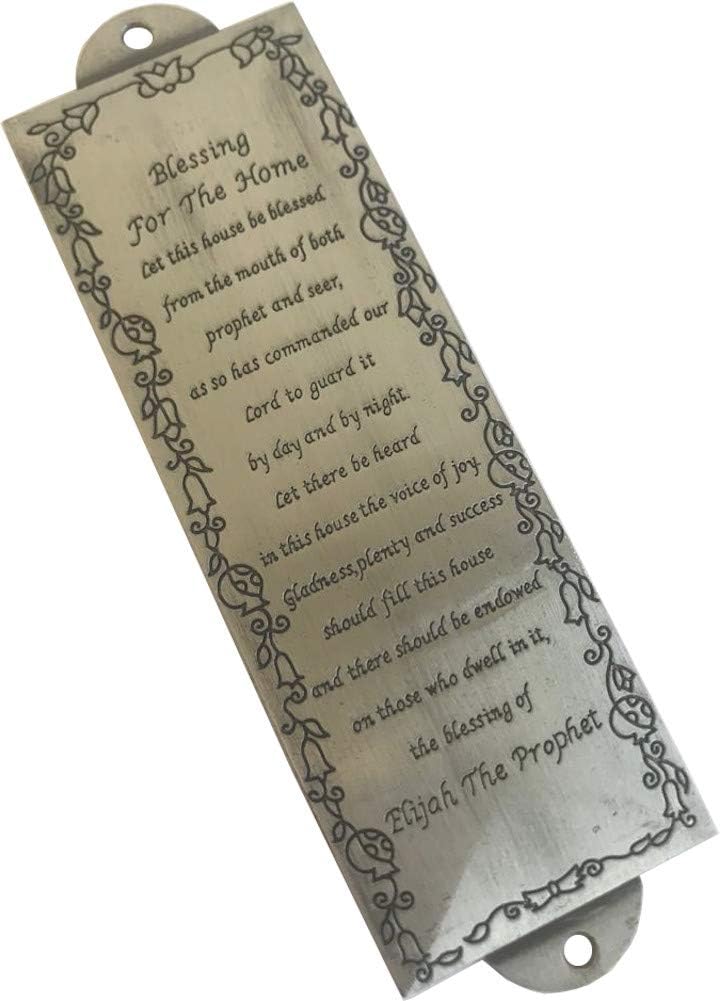 Blessing
For The Home
Let this house be blessed
from the mouth of both
prophet and seer,
as so has commanded our
Lord to guard it
by day and by night.
Let there be heard
in this house the voice of joy
Gladness,plenty and success
should fill this house
and there should be endowed
on those who dwell in it,
the blessing of
Elijah The Prophet